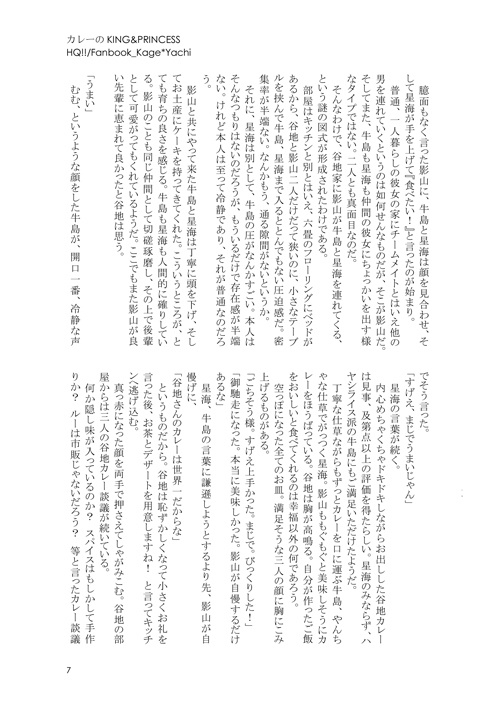 カレーの KING&PRINCESS
HQ!!/Fanbook_Kage*Yachi
臆面もなく言った影山に、牛島と星海は顔を見合わせ、そ
して星海が手を上げて『食べたい！』と言ったのが始まり。
普通、一人暮らしの彼女の家にチームメイトとはいえ他の
男を連れていくというのは如何せんなものだが、そこが影山だ。
そしてまた、牛島も星海も仲間の彼女にちょっかいを出す様
なタイプではない。二人とも真面目なのだ。
そんなわけで、谷地家に影山が牛島と星海を連れてくる、
という謎の図式が形成されたわけである。
部屋はキッチンと別とはいえ、六畳のフローリングにベッドが
あるから、谷地と影山二人だけだって狭いのに、小さなテーブ
ルを挟んで牛島、星海まで入るととんでもない圧迫感だ。密
集率が半端ない。なんかもう、通る隙間がないというか。
それに、星海は別として、牛島の圧がなんかすごい。本人は
そんなつもりはないのだろうが、もういるだけで存在感が半端
ない。けれど本人は至って冷静であり、それが普通なのだろ
う。
影山と共にやって来た牛島と星海は丁寧に頭を下げ、そし
てお土産にケーキを持ってきてくれた。こういうところが、と
ても育ちの良さを感じる。牛島も星海も人間的に確りしてい
る。影山のことも同じ仲間として切磋琢磨し、その上で後輩
として可愛がってもくれているようだ。ここでもまた影山が良
い先輩に恵まれて良かったと谷地は思う。
「うまい」
むむ、というような顔をした牛島が、開口一番、冷静な声
でそう言った。
「すげえ、まじでうまいじゃん」
星海の言葉が続く。
内心めちゃくちゃドキドキしながらお出しした谷地カレー
は見事、及第点以上の評価を得たらしい。星海のみならず、ハ
ヤシライス派の牛島にもご満足いただけたようだ。
丁寧な仕草ながらもずっとカレーを口に運ぶ牛島、やんち
ゃな仕草でがっつく星海。影山ももぐもぐと美味しそうにカ
レーをほうばっている。谷地は胸が高鳴る。自分が作ったご飯
をおいしいと食べてくれるのは幸福以外の何であろう。
空っぽになった全てのお皿。満足そうな三人の顔に胸にこみ
上げるものがある。
「ごちそう様。すげえ上手かった。まじで。びっくりした！」
「御馳走になった。本当に美味しかった。影山が自慢するだけ
あるな」
星海、牛島の言葉に謙遜しようとするより先、影山が自
慢げに、
「谷地さんのカレーは世界一だからな」
というものだから。谷地は恥ずかしくなって小さくお礼を
言った後、お茶とデザートを用意しますね！　と言ってキッチ
ンへ逃げ込む。
真っ赤になった顔を両手で押さえてしゃがみこむ。谷地の部
屋からは三人の谷地カレー談議が続いている。
何か隠し味が入っているのか？　スパイスはもしかして手作
りか？　ルーは市販じゃないだろう？　等と言ったカレー談議
7